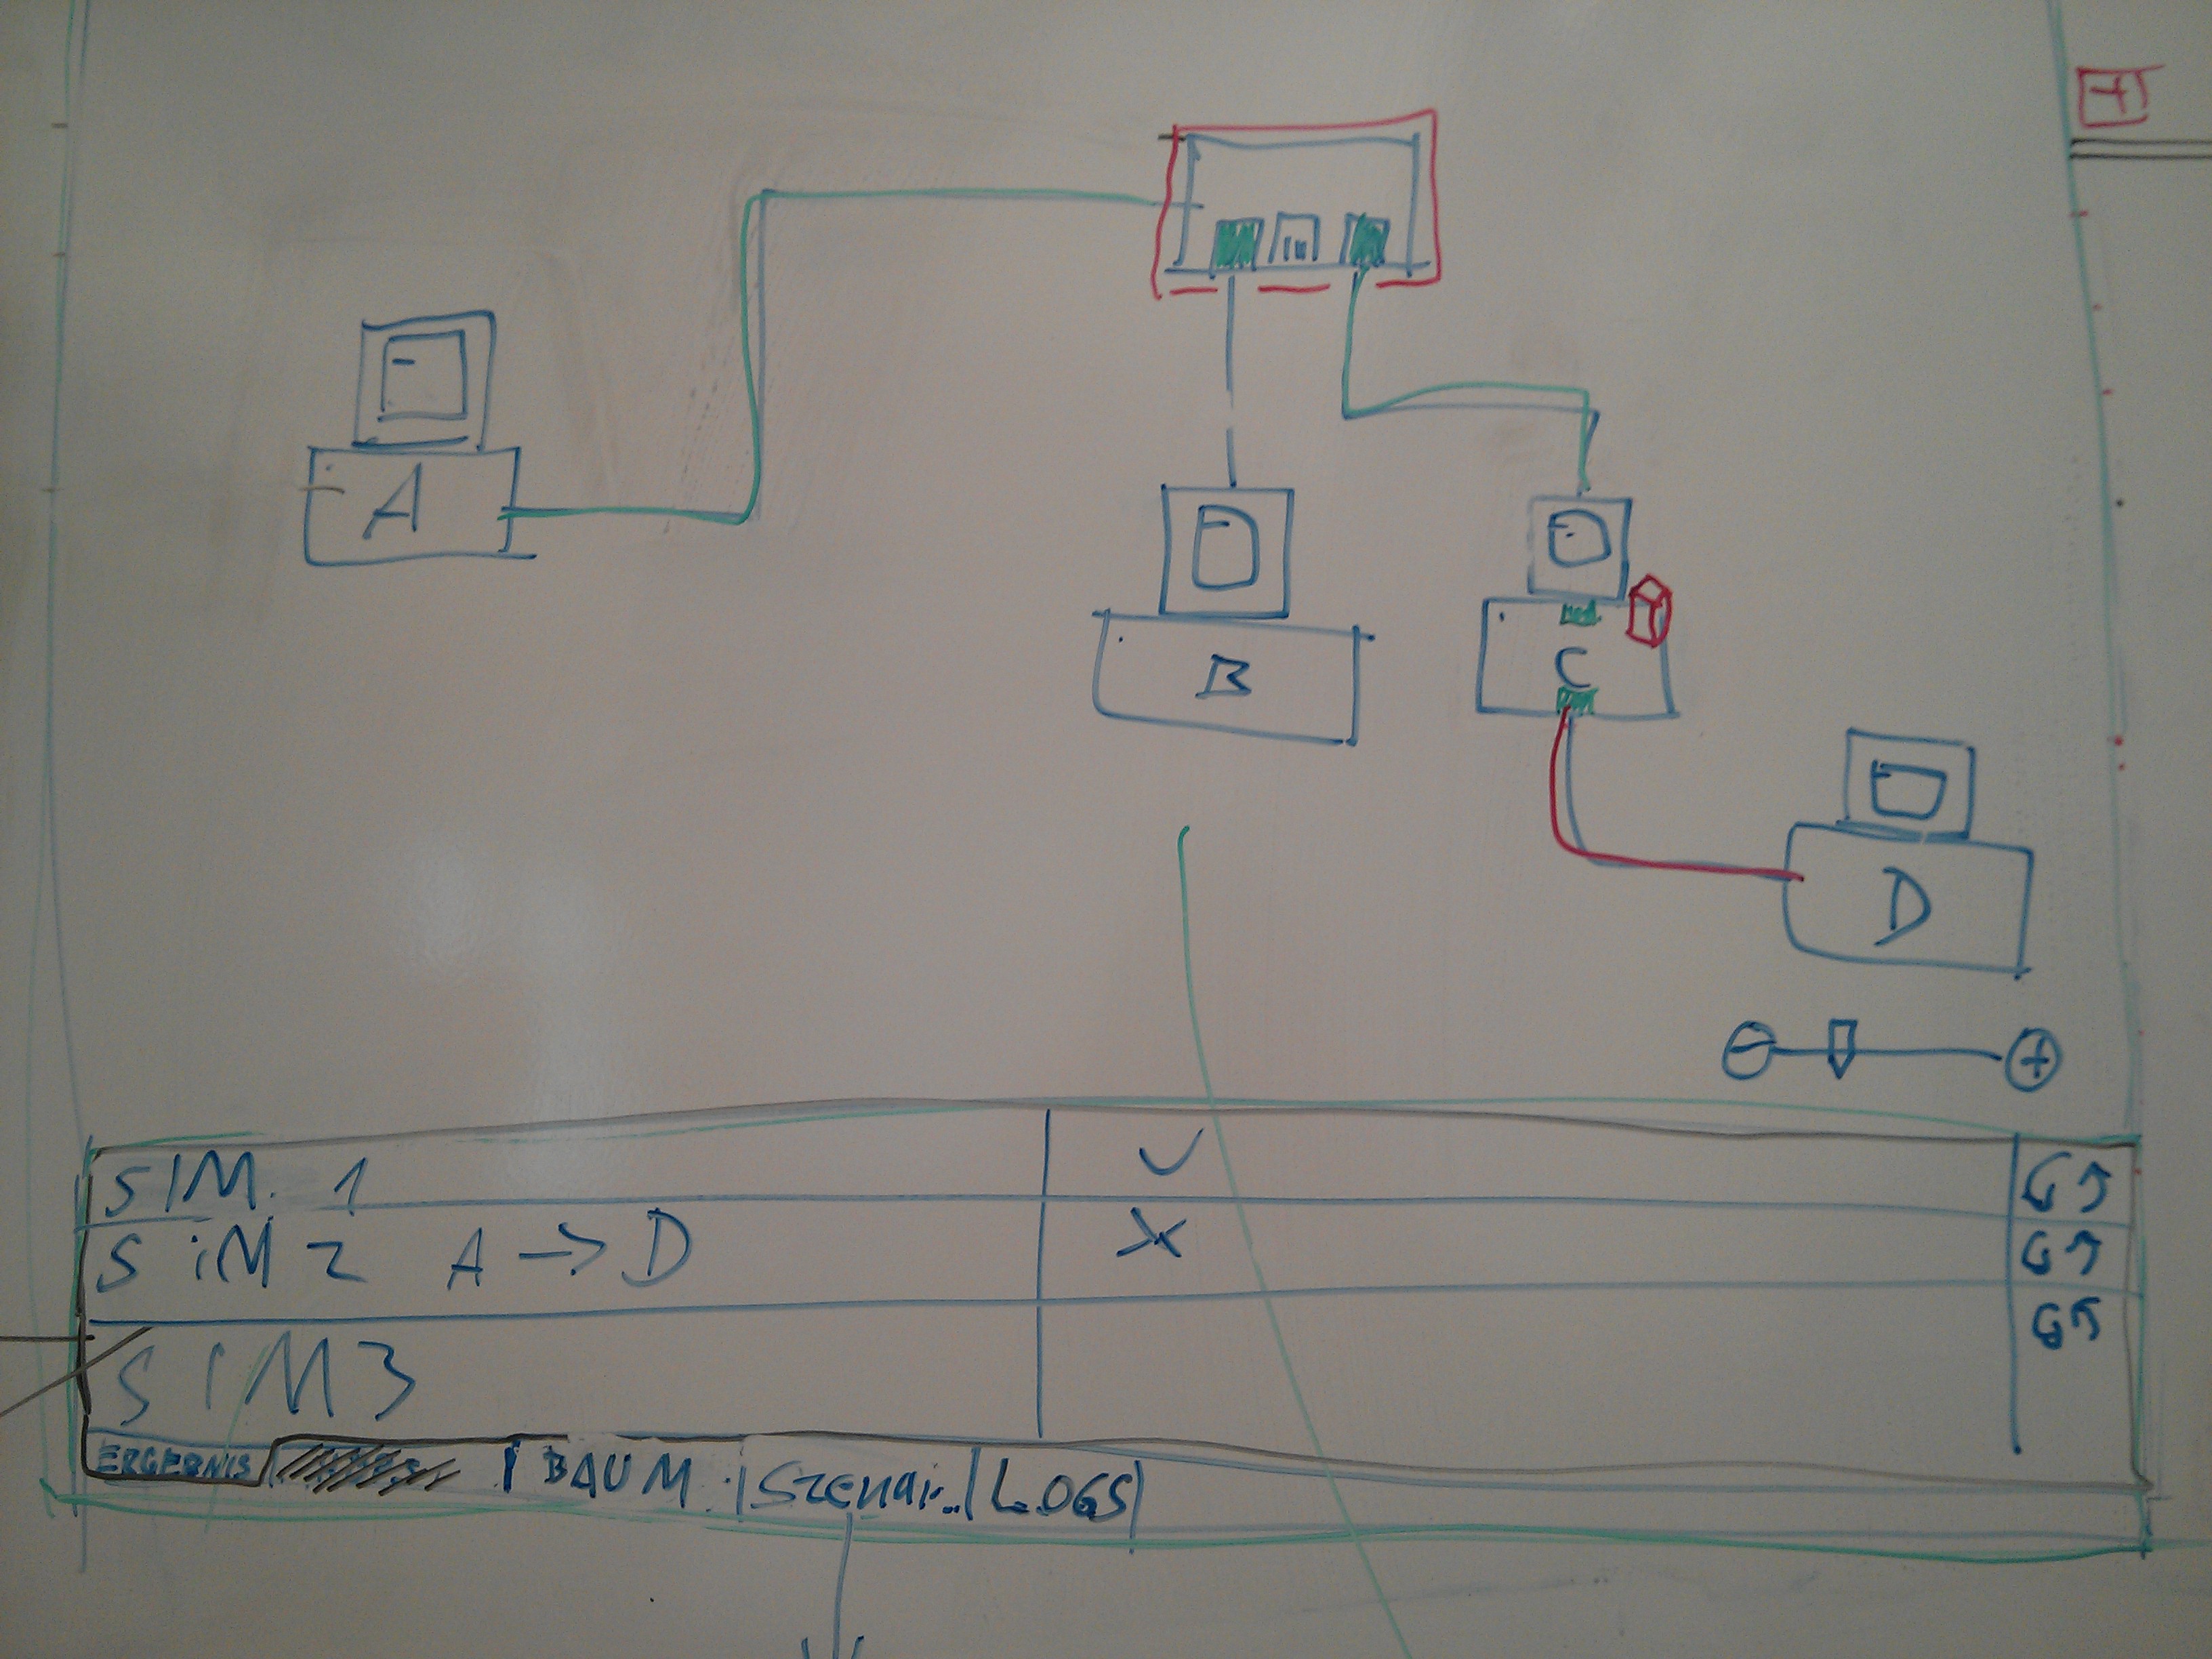 A
B
C
D
SIM. 1
SiM 2 A -> D
SIM3
ERGEBNIS BAUM Szenar.. LOGS